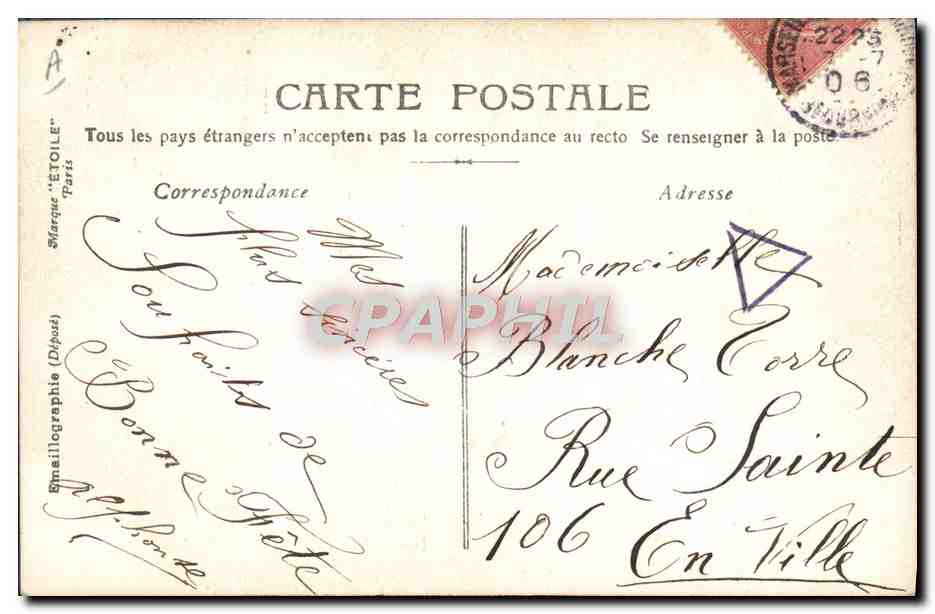 A
22 25
7 - 7
06
MARSEI
CARTE POSTALE
Tous les pays étrangers n'acceptent pas la correspondance au recto Se renseigner à la poste.
Correspondance
Adresse
Marque "ÉTOILE" Paris
Emaillographie (Déposé)
Mes
plus sincères
Souhaits de
Bonne Fête
Alphonse
Mademoiselle
Blanche Torre
Rue Sainte
106 En Ville
CPAPHIL